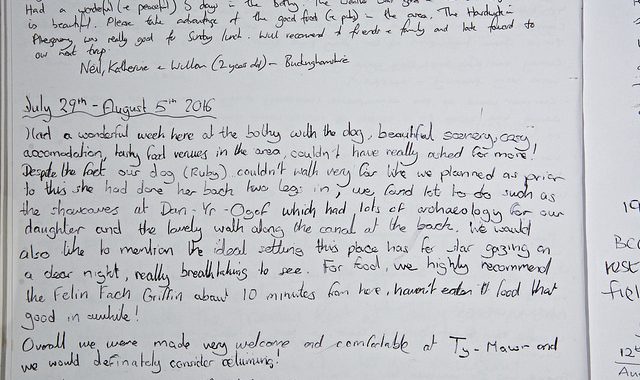 Had a wonderful (+ peaceful) 5 days in the bothy. The
is beautiful. Please take advantage of the good food (+ pubs) in the area. The Hardwick
Pheasantry was really good for Sunday lunch. Will recommend to friends + family and look forward to
our next trip.
Neil, Katherine + William (2 years old) - Buckinghamshire
July 29th - August 5th 2016
Had a wonderful week here at the bothy with the dog, beautiful scenery, cosy
accomodation, tasty food venues in the area, couldn't have really asked for more!
Despite the fact our dog (Ruby) couldn't walk very far like we planned as prior
to this she had done her back two legs in, we found lots to do such as
the showcaves at Dan-Yr-Ogof which had lots of archaeology for our
daughter and the lovely walk along the canal at the back. We would
also like to mention the ideal setting this place has for star gazing on
a clear night, really breathtaking to see. For food, we highly recommend
the Felin Fach Griffin about 10 minutes from here, haven't eaten food that
good in awhile!
Overall we were made very welcome and comfortable at Ty-Mawr and
we would definately consider returning!
19
BC
rust
fiel
12th
Au